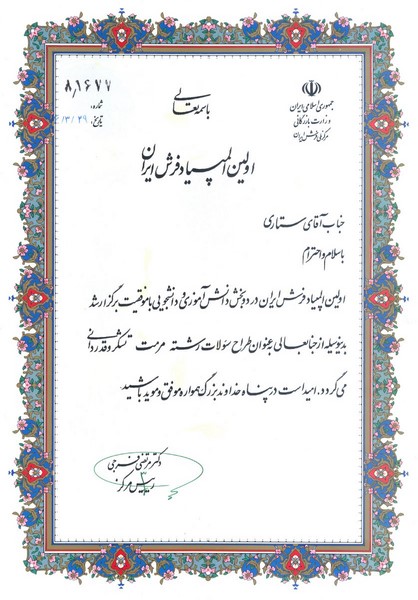 باسمه تعالی
جمهوری اسلامی ایران
وزارت بازرگانی
مرکز ملی فرش ایران
۸,۱۶۷۷
شماره:
تاریخ: /۳/۲۹
اولین المپیاد فرش ایران
جناب آقای ستاری
با سلام و احترام
اولین المپیاد فرش ایران در دو بخش دانش آموزی و دانشجویی با موفقیت برگزار شد
بدینوسیله از جنابعالی بعنوان طراح سئولات رشته مرمت تشکر و قدردانی
می گردد. امید است در پناه خداوند بزرگ همواره موفق و موید باشید.
دکتر مرتضی فرجی
رییس مرکز